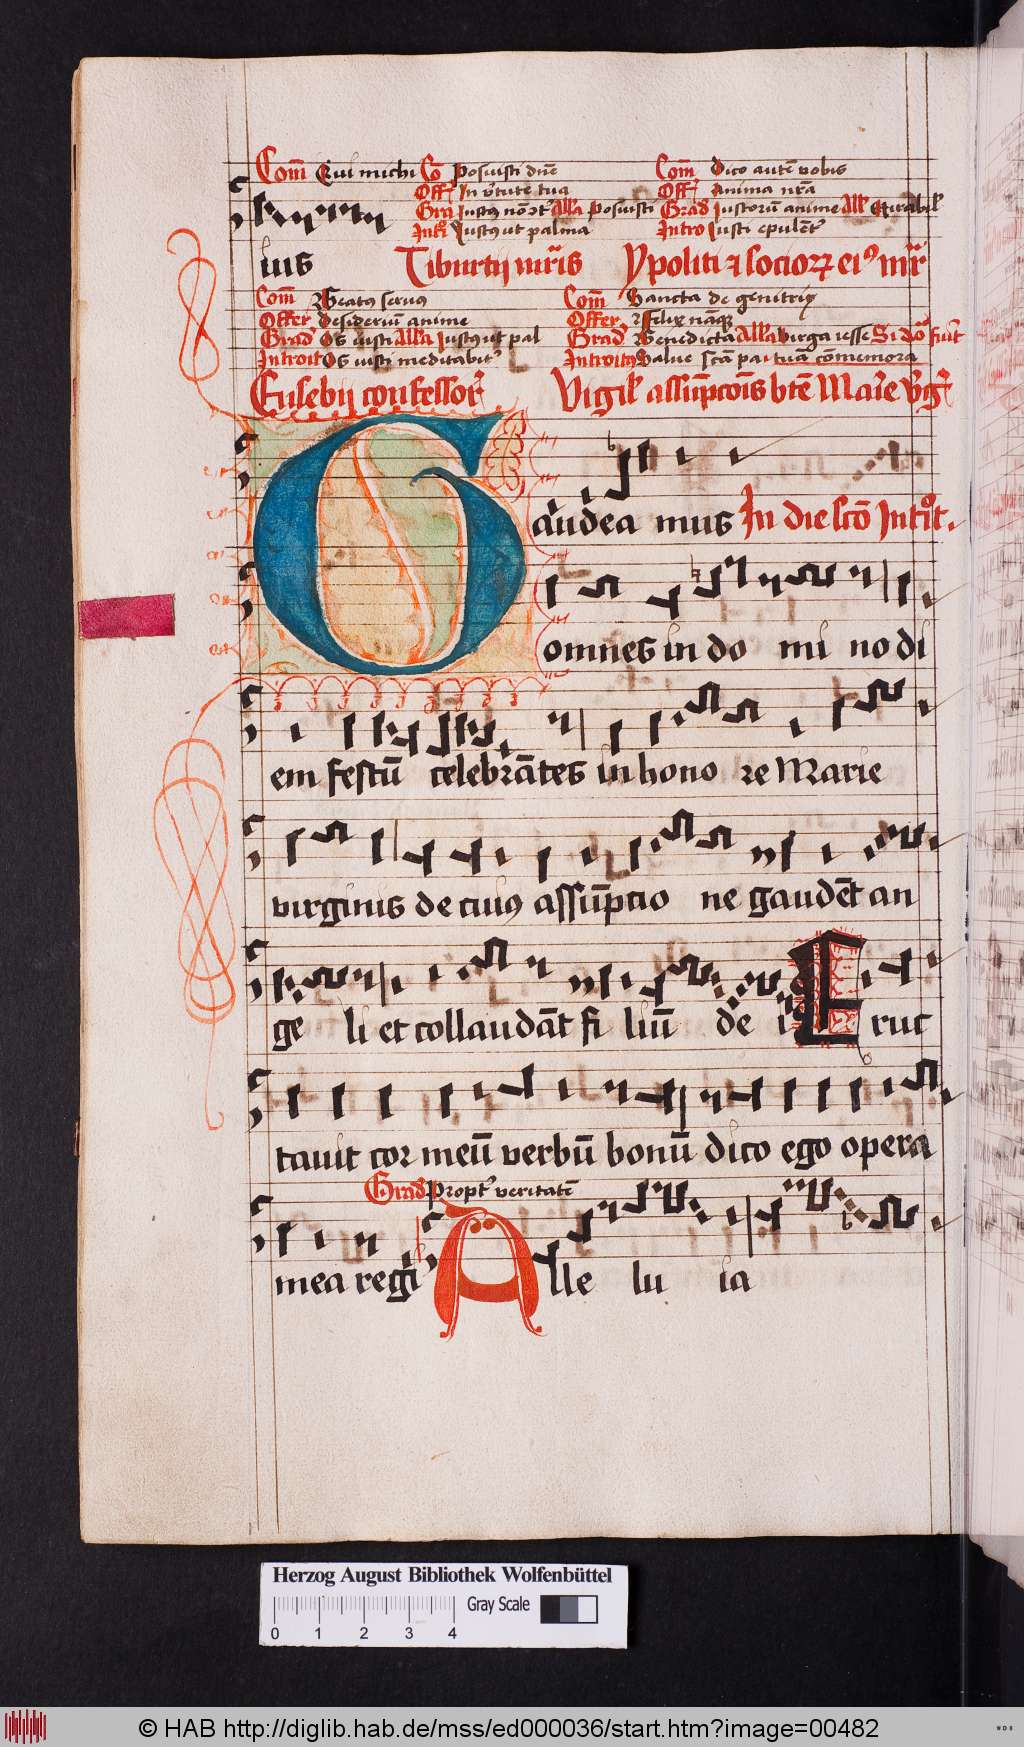 Com̄ Qui michi Cō Posuisti dn̄e Com̄ Dico autē vobis
Off̄ In v̓tute tua Off̄ Anima nr̄a
Gra Justꝯ nō ꝯt᷑ Alla Posuisti Grad̄ Justorū anime All̄ Mirabil̄
Intr̄ Justꝯ ut palma Intro Justi epulēt᷑
lius Tiburtij mr̄is Ypoliti ⁊ socioꝝ eiꝰ mr̄
Com̄ Beatꝯ servus Com̄ Sancta dei genitrix
Offer Desideriū anime Offer Felix nāꝗ
Grad̄ Os iusti Alla Justꝯ ut pal Grad̄ Benedicta Alla Virga iesse Si dō fuīt
Introit Os iusti meditabit᷑ Introitꝯ Salve scā pa tuā cōmemora
Eusebij confessor̄ Vigil̄ assūpcōis btē Marie v̓g̓
Gaudea mus In die scō Int̓oit.
omnes in do mi no di
em festū celebrātes in hono re Marie
virginis de cuiꝯ assūpcio ne gaudēt an
ge li et collaudāt fi liū de i Eruc
tavit cor meū verbū bonū dico ego opera
Grad̄ Propt᷑ veritatē
mea regi Alle lu ia
Herzog August Bibliothek Wolfenbüttel
Gray Scale
0 1 2 3 4
© HAB http://diglib.hab.de/mss/ed000036/start.htm?image=00482